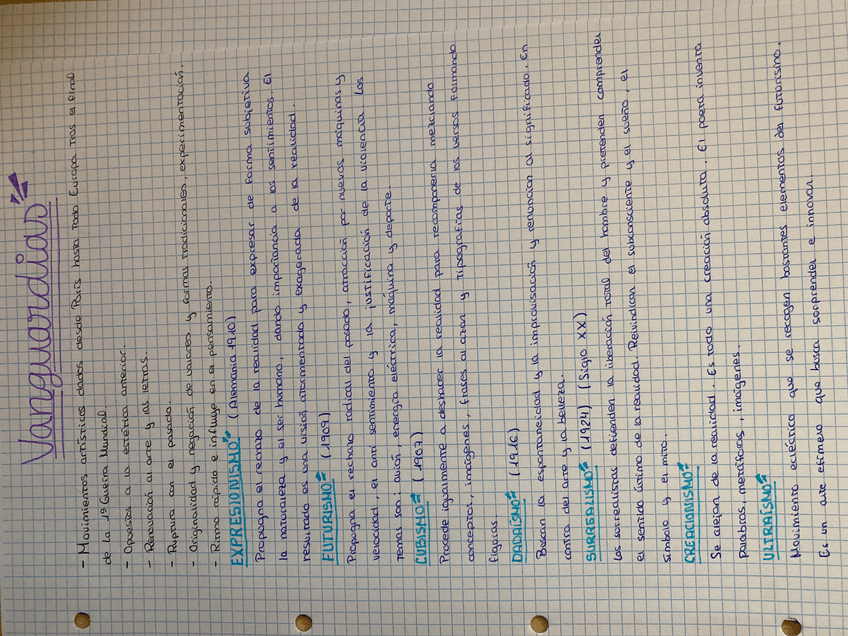 Vanguardias
- Movimientos artísticos dados desde París hasta toda Europa tras el final
de la 1ª Guerra Mundial.
- Opuestos a la estética anterior.
- Renovación al arte y las letras.
- Ruptura con el pasado.
- Originalidad y negación de valores y formas tradicionales, experimentación.
- Ritmo rápido e influye en el pensamiento.
EXPRESIONISMO (Alemania 1910)
Propugna el rechazo de la realidad para expresar de forma subjetiva
la naturaleza y el ser humano, dando importancia a los sentimientos. El
resultado es una visión atormentada y exagerada de la realidad.
FUTURISMO (1909)
Propugna el rechazo radical del pasado, atracción por nuevas máquinas y
velocidad, el anti sentimiento y la justificación de la violencia. Los
temas son: avión, energía eléctrica, máquina y deporte.
CUBISMO (1907)
Procede igualmente a deshacer la realidad para recomponerla mezclando
conceptos, imágenes, frases al azar y tipografías de los versos formando
figuras.
DADAÍSMO (1916)
Buscan la espontaneidad y la improvisación y renuncian al significado. En
contra del arte y la belleza.
SURREALISMO (1924) (Siglo XX)
Los surrealistas defienden la liberación total del hombre y pretenden comprender
el sentido último de la realidad. Reivindican el subconsciente y el sueño, el
símbolo y el mito.
CREACIONISMO
Se alejan de la realidad. Es todo una creación absoluta. El poeta inventa
palabras, metáforas, imágenes.
ULTRAÍSMO
Movimiento ecléctico que se recogen bastantes elementos del futurismo.
Es un arte efímero que busca sorprender e innovar.